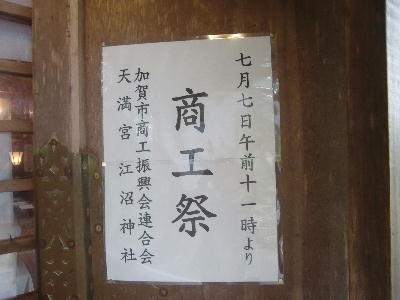 七月七日午前十一時より
商工祭
加賀市商工振興会連合会
天満宮江沼神社